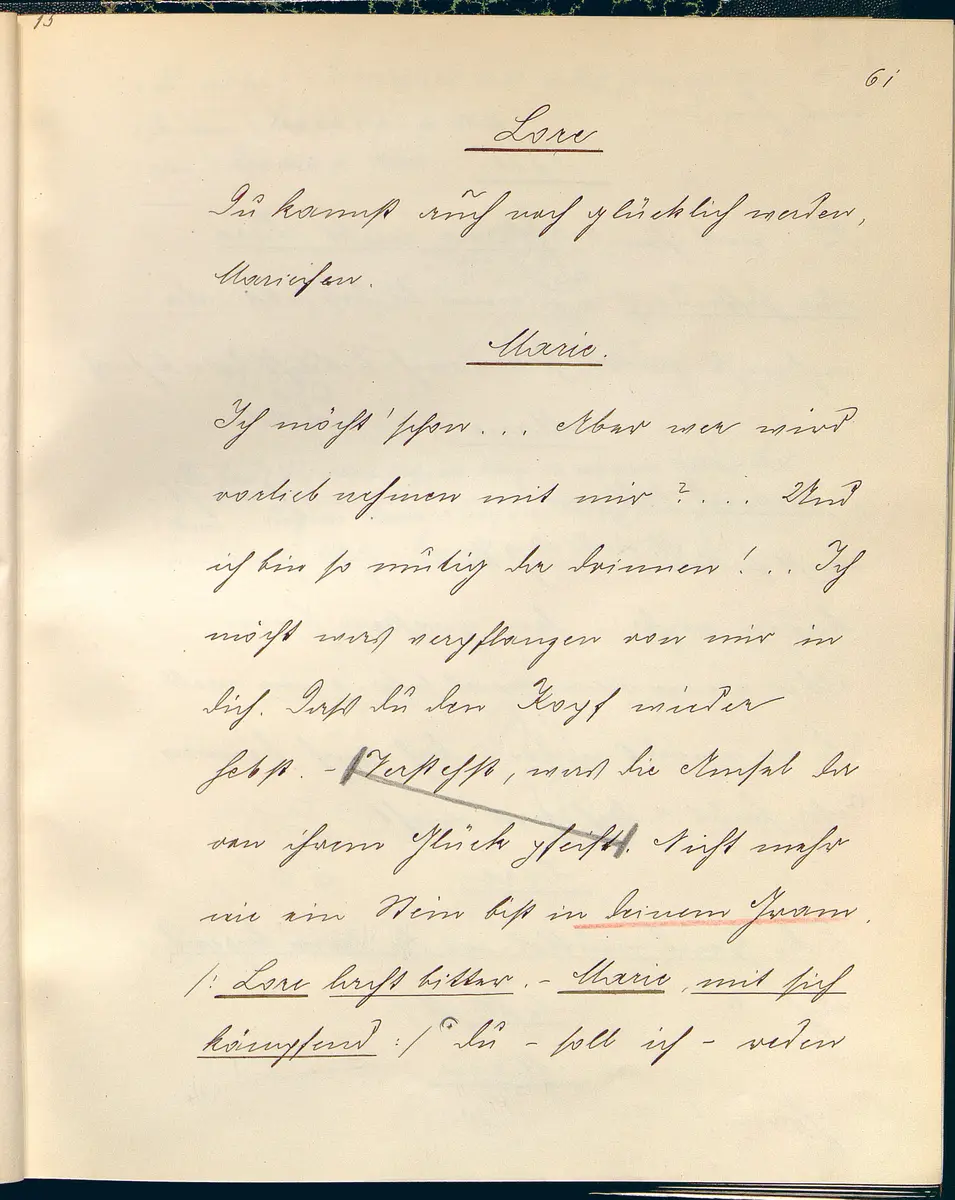 15
61
Lore
Du kannst auch noch glücklich werden,
Mariechen.
Marie.
Ich möcht' schon... Aber wer wird
vorlieb nehmen mit mir?... Und
ich bin so mutig da drinnen!.. Ich
möcht was verpflanzen von mir in
dich. Dass du den Kopf wieder
hebst. - Verstehst, was die Amsel da
von ihrem Glück pfeift. Nicht mehr
wie ein Stein bist in deinem Gram.
/: Lore lacht bitter. - Marie, mit sich
kämpfend :/ Du - soll ich - reden